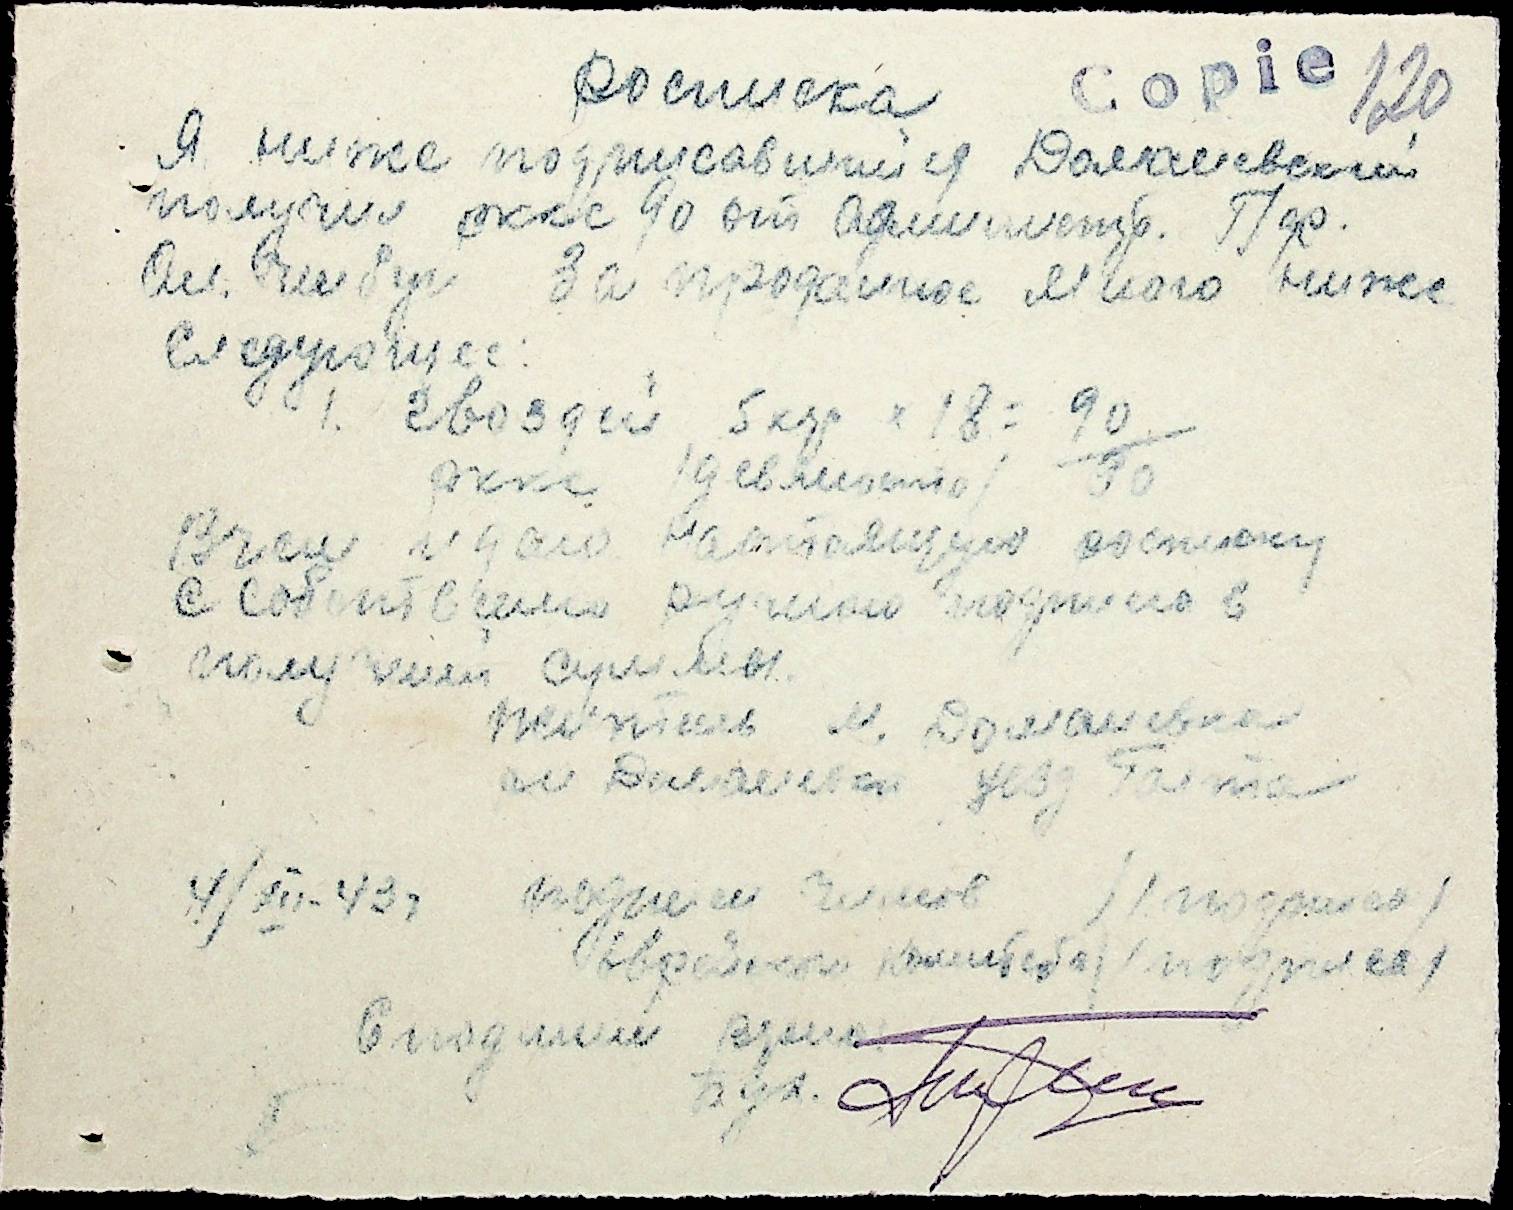 Росписка Copie 120
Я ниже подписавшийся Доманевский
получил рккс 90 от Администр. Пдр.
Ал. за проданное мною ниже
следующее:
1. гвоздей 5 кгр × 18 = 90
рккс /девяносто/ 90
В чем и даю настоящую роспизку
с собственно ручною подписю в
получений суммы.
Житель м. Доманевка
рн Доманевка уезд Голта
4/XII-43 г подписи членов / /подпись/
Еврейского комитета / /подпись/
С подлиным верно:
Бух.